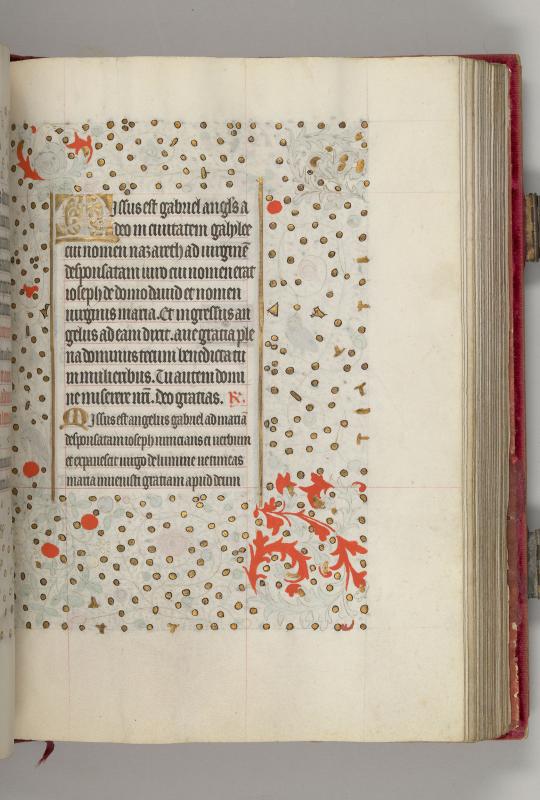 Missus est gabriel angl's a
deo in ciuitatem galylee
cui nomen nazareth ad uirginē
desponsatam uiro cui nomen erat
ioseph de domo dauid et nomen
uirginis maria. Et ingressus an
gelus ad eam dixit. aue gracia ple
na dominus tecum benedicta tu
in mulieribus. Tu autem domi
ne miserere nr̄i. deo gracias. R̄.
Missus est angelus gabriel ad mariā
desponsatam ioseph nuncians ei uerbum
et expauescit uirgo de lumine ne timeas
maria inuenisti gratiam apud deum